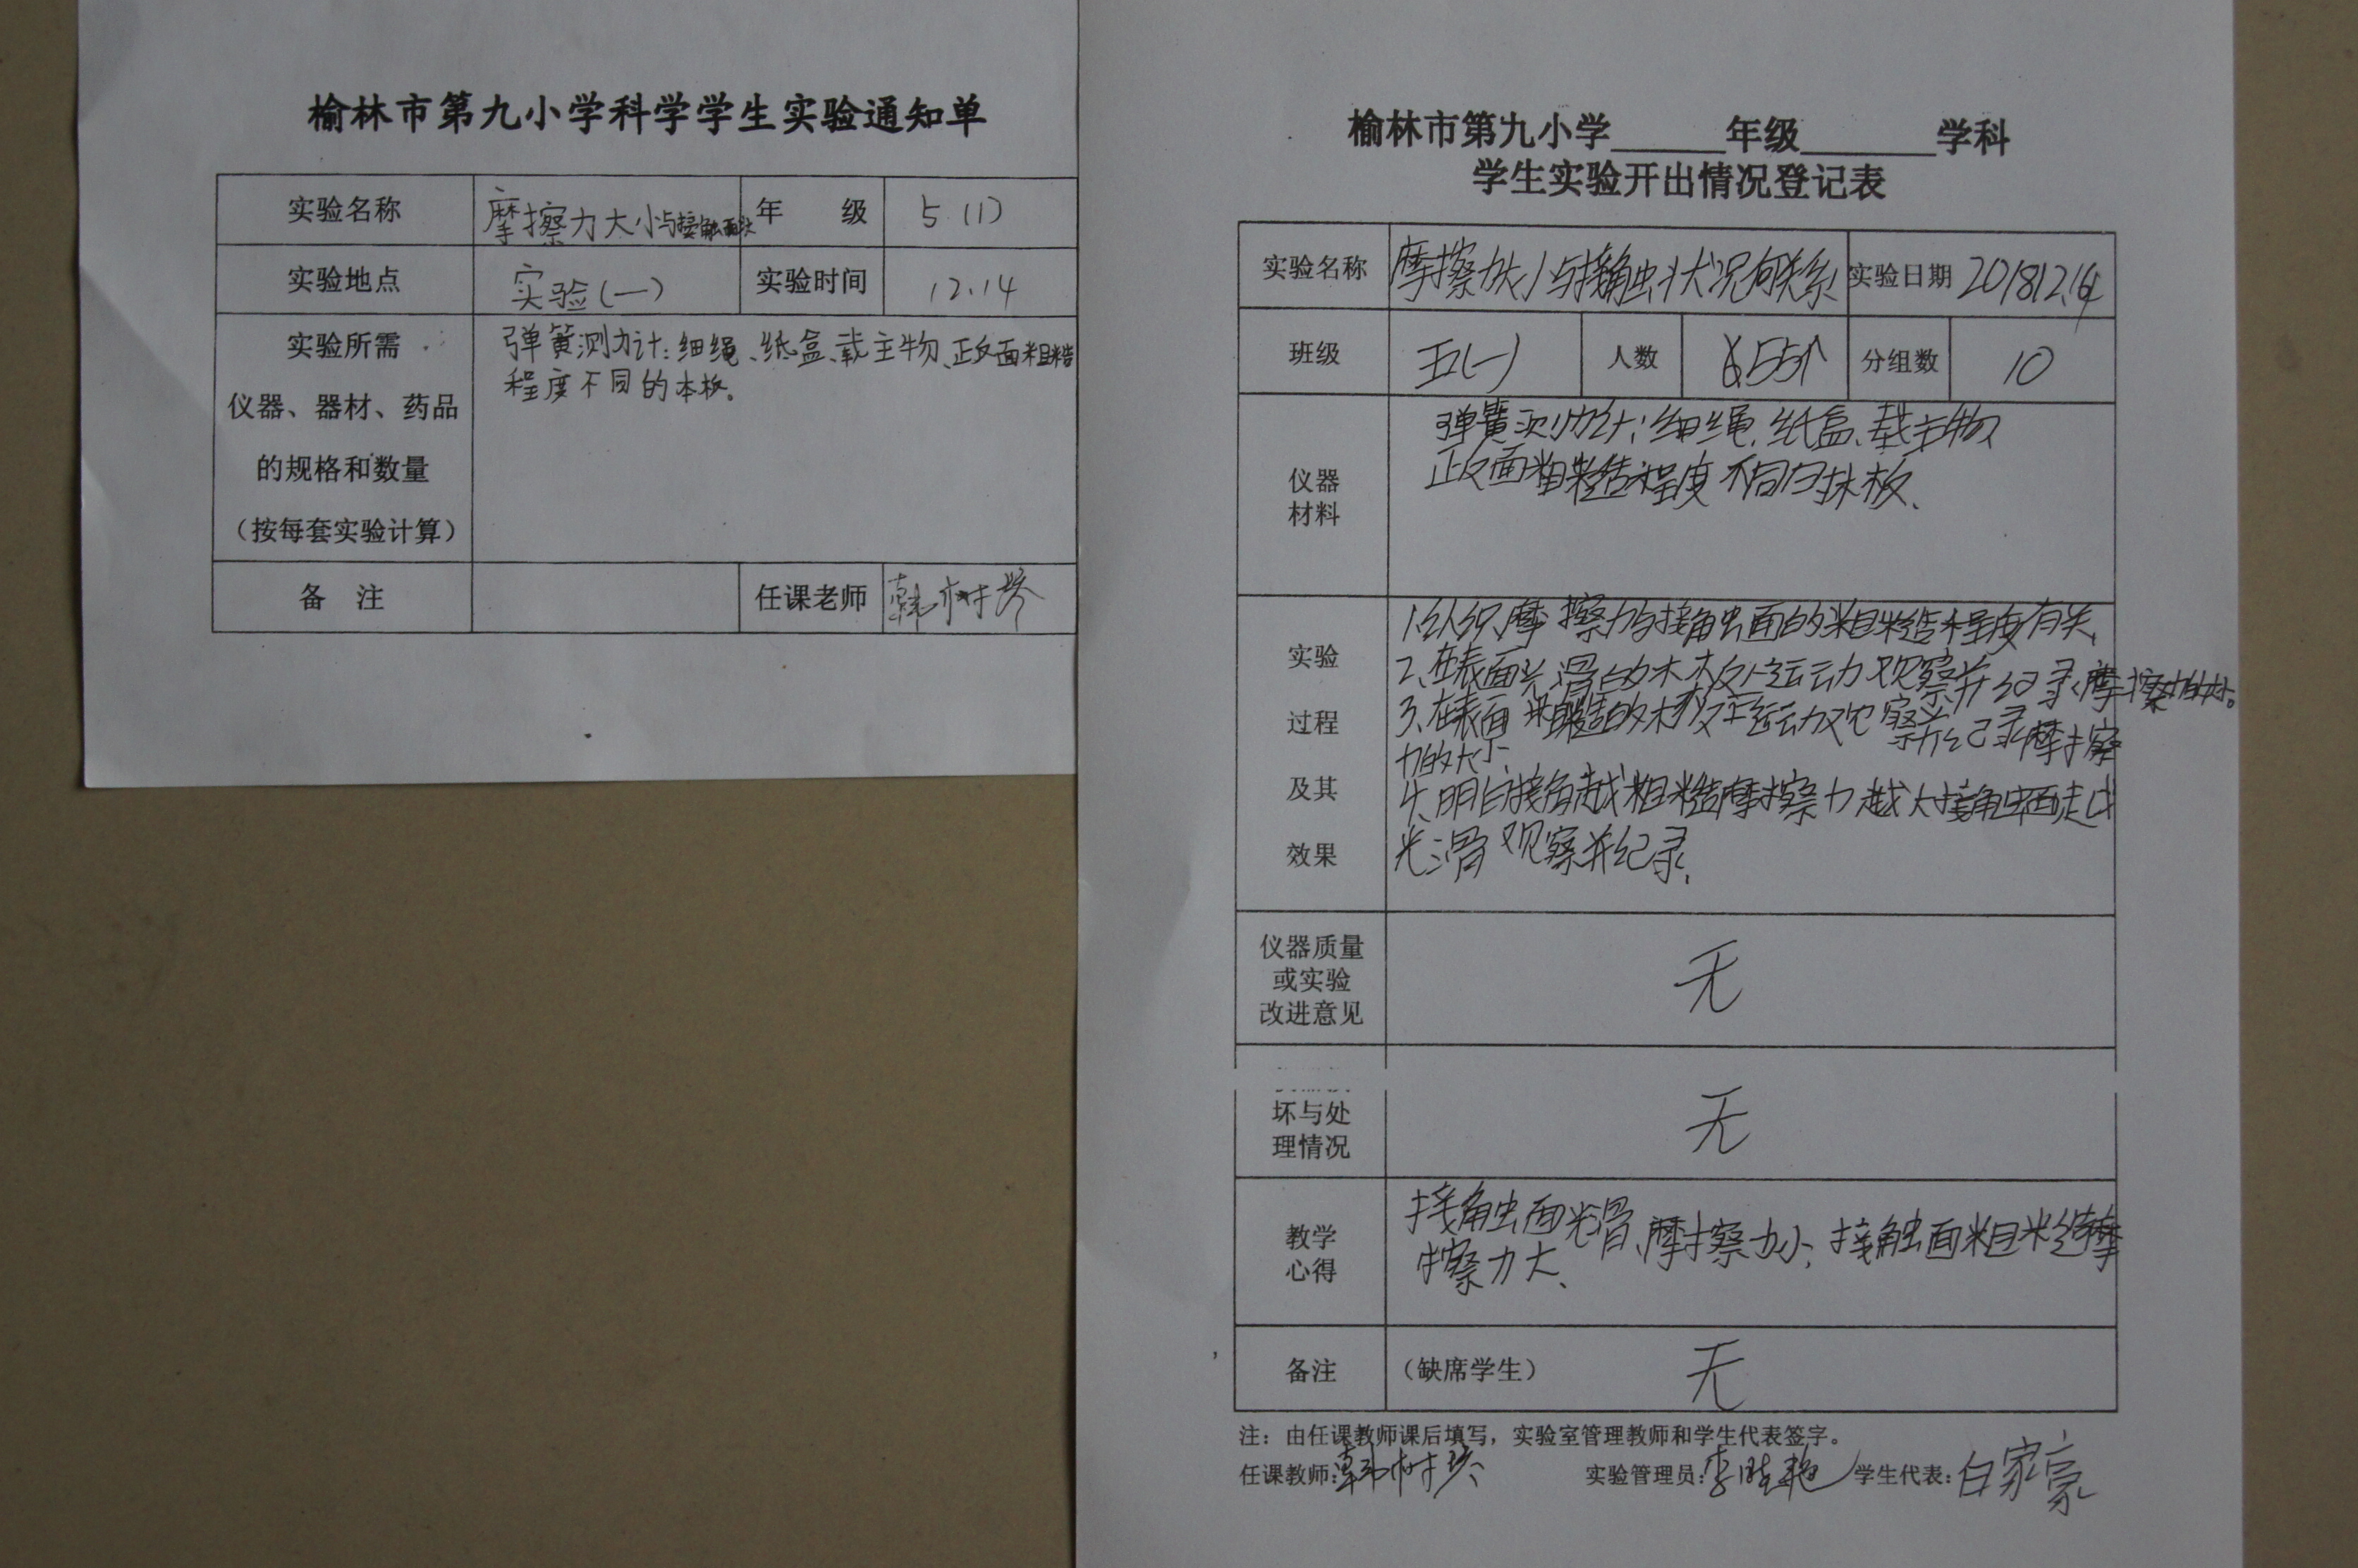 榆林市第九小学科学学生实验通知单
实验名称 摩擦力大小与接触面状 年 级 5(1)
实验地点 实验(一) 实验时间 12.14
实验所需
仪器、器材、药品
的规格和数量
(按每套实验计算)
弹簧测力计:细绳、纸盒、载主物、正反面粗糙
程度不同的本板。
备 注 任课老师
榆林市第九小学______年级_______学科
学生实验开出情况登记表
实验名称 摩擦力大小与接触状况何关系 实验日期 2018.12.14
班级 五(一) 人数 55个 分组数 10
仪器
材料
弹簧测力计:细绳、纸盒、载主物
正反面粗糙程度不同的木板、
实验
过程
及其
效果
1、认识摩擦力与接触面的粗糙程度有关、
2、在表面光滑的木板上运动观察并记录摩擦力的大小。
3、在表面粗糙的木板上运动观察并记录摩擦
力的大小、
4、明白接角越粗糙摩擦力越大接触面越
光滑观察并纪录、
仪器质量
或实验
改进意见
无
坏与处
理情况
无
教学
心得
接触面光滑、摩擦力小、接触面粗糙摩
擦力大、
备注 (缺席学生) 无
注:由任课教师课后填写,实验室管理教师和学生代表签字。
任课教师: 实验管理员:李晓艳 学生代表:白家豪